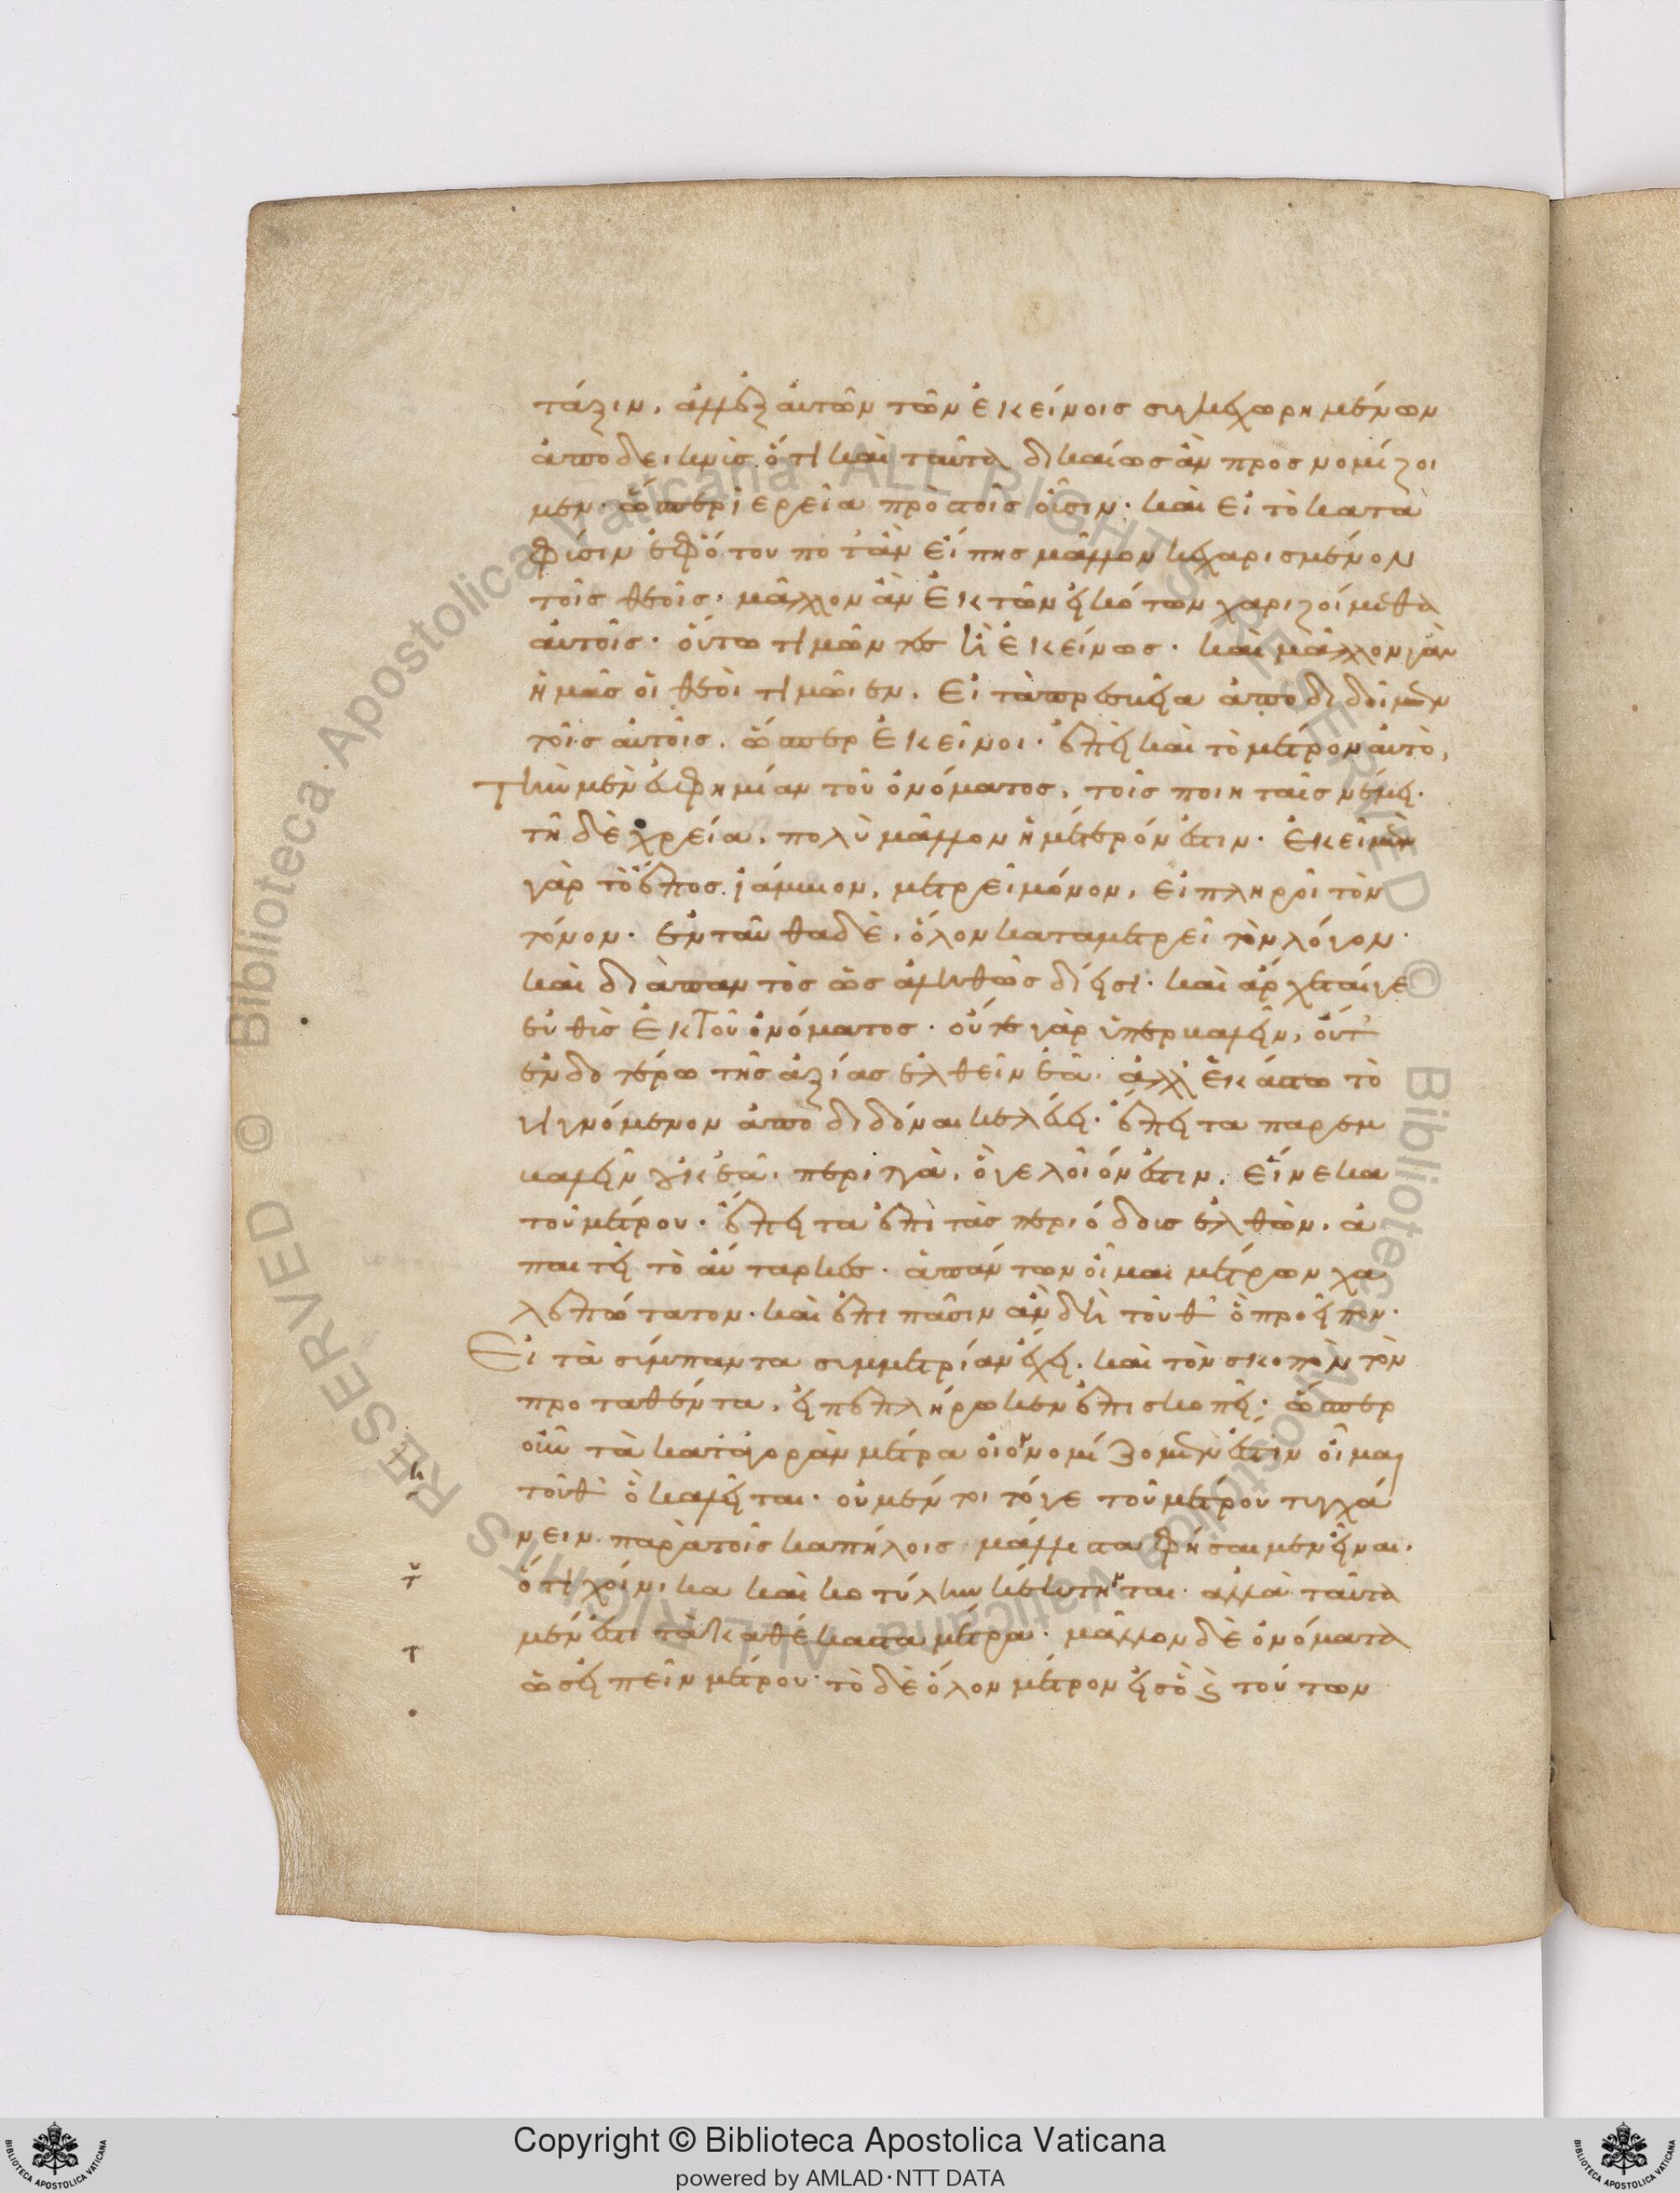 τάξιν. ἀλλ' ἐξ αὐτῶν τῶν ἐκείνοις συγκεχωρημένων
ἀποδεικνὺς ὅτι καὶ ταῦτα δικαίως ἂν προσνομίζοι
μεν. ὥσπερ ἱερεῖα πρὸ τοῖς οἷσιν. καὶ εἰ τὸ κατὰ
φύσιν ἐφ' ὅτου ποτ' ἂν εἴπης μᾶλλον κεχαρισμένον
τοῖς θεοῖς. μᾶλλον ἂν ἐκ τῶν εἰκότων χαριζοίμεθα
αὐτοῖς. οὕτω τιμῶντες ἢ ἐκείνως. καὶ μᾶλλον γ' ἂν
ἡμᾶς οἱ θεοὶ τιμῷεν. εἰ τὰ πρεσβεῖα ἀποδιδοῖμεν
τοῖς αὐτοῖς. ὥσπερ ἐκεῖνοι. ἐπεὶ καὶ τὸ μέτρον αὐτὸ,
τὴν μὲν εὐφημίαν τοῦ ὀνόματος, τοῖς ποιηταῖς νέμει.
τῇ δὲ χρεία, πολὺ μᾶλλον ἡμέτερόν ἐστιν. ἐκεῖ μὲν
γὰρ τὸ ἔπος. ἰάμβον, μετρεῖ μόνον, εἰ πληροῖ τὸν
τόνον. ἐνταῦθα δὲ, ὅλον καταμετρεῖ τὸν λόγον.
καὶ διὰ παντὸς ὡς ἀληθῶς διήσι. καὶ ἄρχεταί γε
εὐθὺς ἐκ τοῦ ὀνόματος. οὔτε γὰρ ὑπερβαλεῖν, οὔτ'
ἐνδοτέρω τῆς ἀξίας ἐλθεῖν ἐᾷ. ἀλλ' ἑκάστω τὸ
γιγνόμενον ἀποδιδόναι κελεύει. ἔπειτα παρεμ
βαλεῖν οὐκ ἐᾷ. περιττὰ, ὃ γελοῖόν ἐστιν, εἵνεκα
τοῦ μέτρου. ἔπειτα ἐπὶ τὰς περιόδους ἐλθὼν, ἀ
παιτεῖ τὸ αὔταρκες. ἁπάντων οἶμαι μέτρων χα
λεπώτατον. καὶ ἐπὶ πᾶσιν αὖ δὴ τοῦθ' ὃ προεῖπον.
Εἰ τὰ σύμπαντα συμμετρίαν ἔχει. καὶ τὸν σκοπὸν τὸν
προταθέντα, εἰ πεπλήρωκεν ἐπισκοπεῖ. ὥσπερ
οὖν τὰ κατ' ἀγορὰν μέτρα οἷον νομίζομεν ἐστὶν οἶμαι
τοῦθ' ὃ καλεῖται. οὐ μέντοι τό γε τοῦ μέτρου τυγχά
νειν παρὰ τοῖς καπήλοις μάλιστα φήσαιμεν εἶναι.
ὅτι χοίνικα καὶ κοτύλην κέκτηνται. ἀλλὰ ταῦτα
μέν ἐστι τὰ καθέκαστα μέτρα. μᾶλλον δὲ ὀνόματα
ὡς εἰπεῖν μέτρου. τὸ δὲ ὅλον μέτρον εἰς ὃ καὶ τούτων